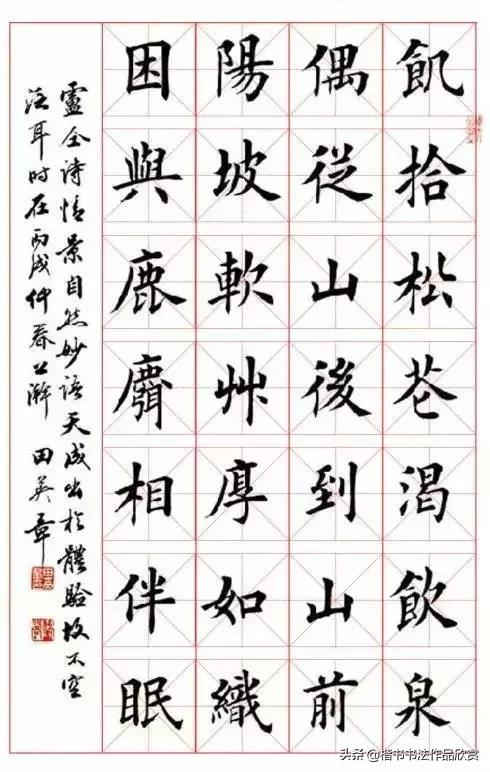 飢拾松芲渴飲泉
偶從山後到山前
陽坡軟艸厚如織
困與鹿麛相伴眠
盧仝詩情景自然妙語天成出於體驗故不空
泛耳时在丙戌仲春上澣 田英章
头条 @楷书书法作品欣赏